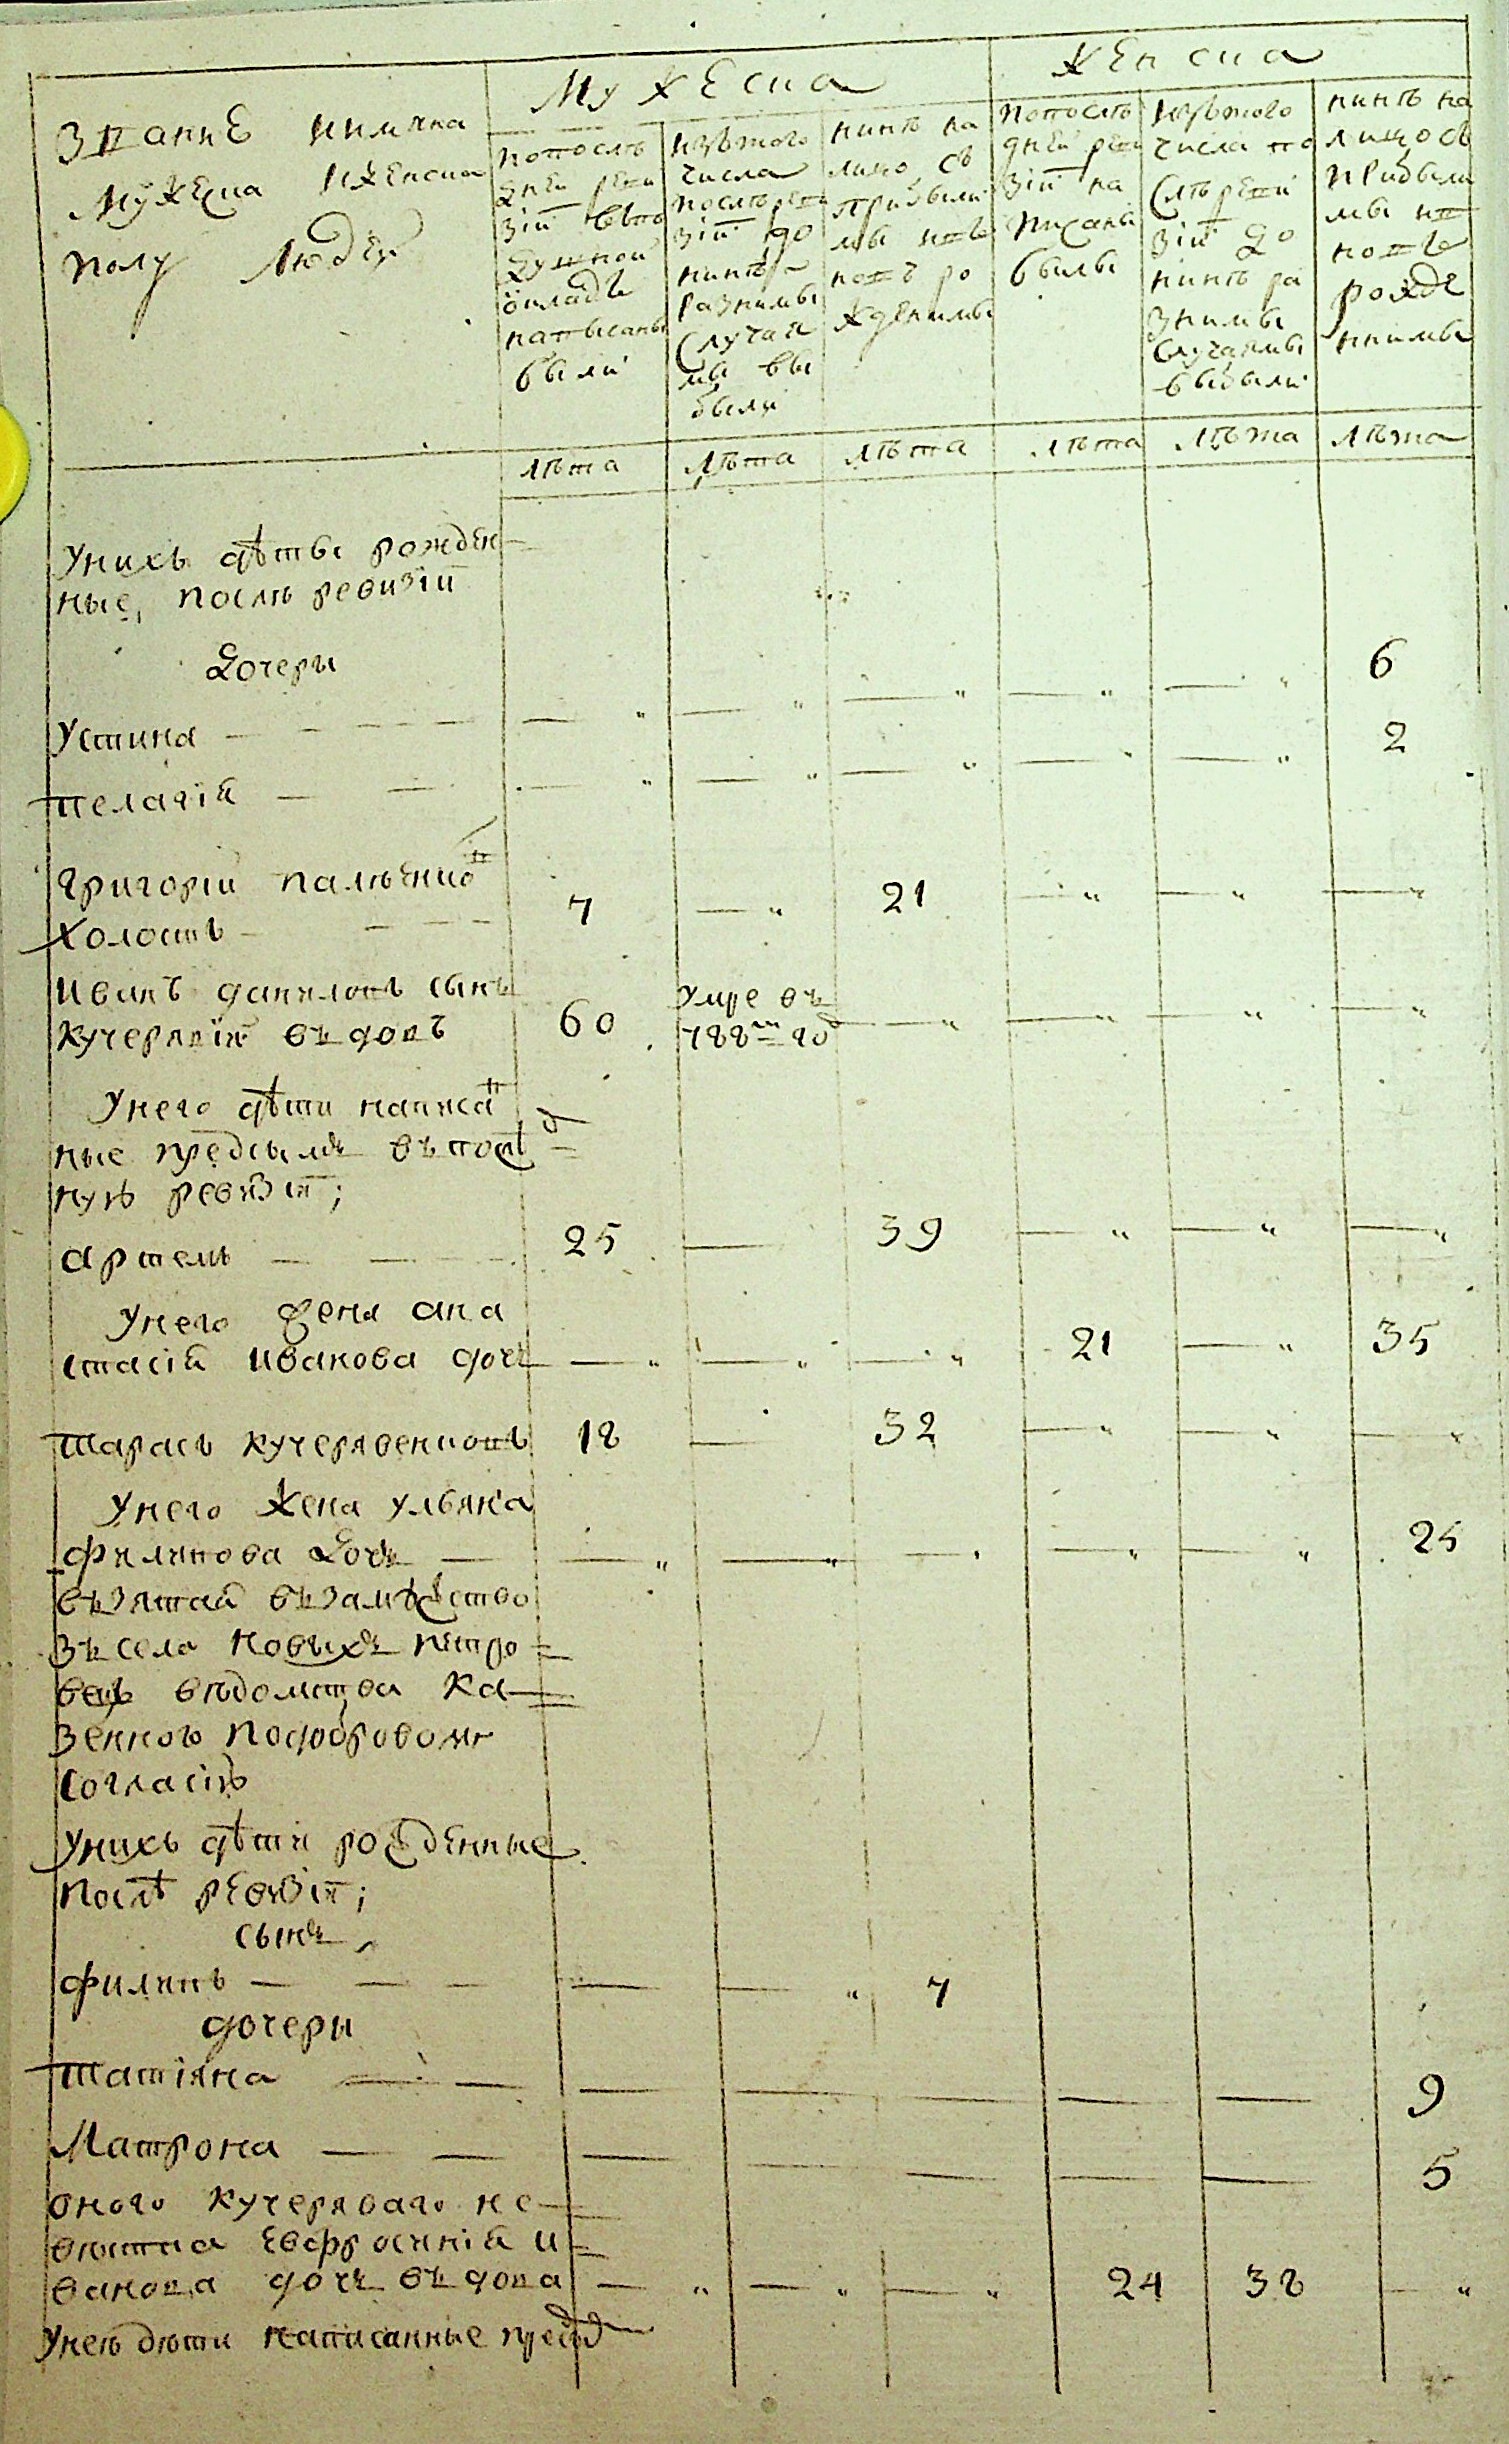 Мужеска
Женска
Званиѣ и имяна
мужеска и женска
полу людей
по посль
дней реви
зіи въ по
душной
окладъ
написаны
были
изъ того
числа
посль реви
зіи до
нинь
разними
случая
ми вы
были
нинь на
лицо съ
прибыли
ми и въ
новъ ро
жденими
по посль
дней реви
зіи на
писаны
были
изъ того
числа по
сль реви
зіи до
нинь ра
зними
случаями
выбыли
нинь на
лицо съ
прибыли
ми и въ
новъ
рожде
нними
льта льта льта льта льта льта
У нихъ дѣти рожден
ные, посль ревизіи
дочери
Устина — — — — " — " — " — " — " 6
Пелагія — — — " — " — " — " — " 2
Григорій
Холостъ — — — 7 — " 21 — " — " — "
Иванъ Даниловъ сынъ
Кучерявій въдовъ 60 умре въ 788м год — " — " — " — "
У него дѣти написан
ные предсымъ въ послѣд
ную ревизіи;
Артемъ — — — 25 — 39 — " — " — "
У него жена Ана
стасія Иванова дочь — " — " — " 21 — " 35
Тарасъ Кучерявенковъ 18 — 32 — " — " — "
У него жена Ульяна
Филипова дочь — — " — " — " — " — " 25
възятая въ замужство
зъ села Новыхъ Петро
вецъ вѣдомства ка
зенного по добровомъ
согласію
У нихъ дѣти рожденные
послѣ ревизіи;
сынъ
Филипъ — — — — — " 7
дочери
Татіяна — — — — — — — 9
Матрона — — — — — — — 5
оного Кучеряваго не
вистка Евфросинія И
ванова дочь въдова — " — " — " 24 38 — "
У нею дѣти написанные предъ